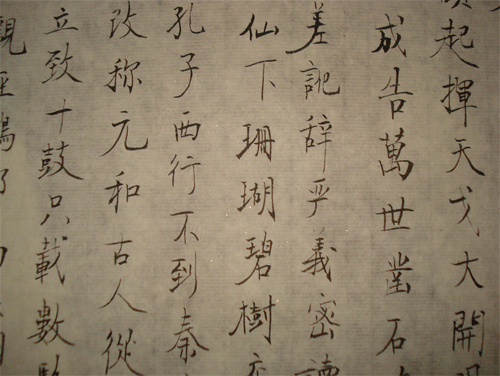 起揮天戈大開
成告萬世鑿石
差訛辞嚴義密讀
仙下珊瑚碧樹交
孔子西行不到秦
改称元和古人從
立致十鼓只載數駱
觀經鴻